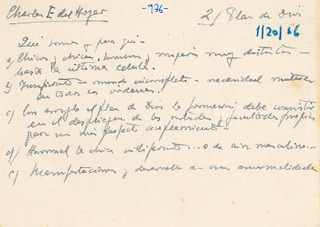 Charles E. del Hoyar
-976-
2/ Plan de Dios
1/20/66
Qué somos y para qué -
a) Chicos y chicas, hombres, mujeres muy distintos -
hasta la última célula -
b) Imperfecto - mundo incompleto - necesidad mutua
en todos los órdenes
c) los arregla el plan de Dios la formación debe consistir
en el despliegue de las cualidades y facultades propias
para un más perfecto acoplamiento -
d) Anormal la chica indiferente... o de aire masculino...
e) Manifestaciones y desarrollo a esas anormalidades